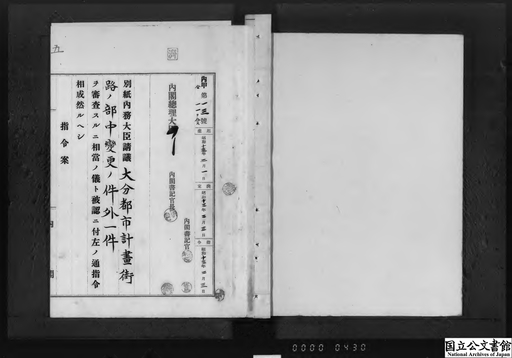 内甲第一三號
内閣總理大臣
内閣書記官長
内閣書記官
別紙内務大臣請議大分都市計畫街
路ノ部中變更ノ件外一件
ヲ審査スルニ相當ノ儀ト被認ニ付左ノ通指令
相成然ルヘシ
指令案
内閣
0000 0430
国立公文書館
National Archives of Japan